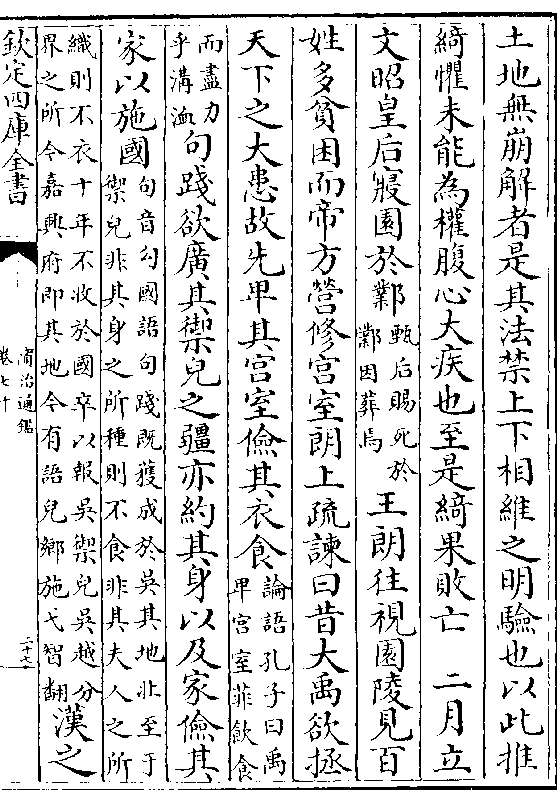 土地無崩解者是其法禁上下相維之明驗也以此推
綺懼未能為權腹心大疾也至是綺果敗亡　二月立
文昭皇后寢園於鄴
甄后賜死於
鄴因葬焉
王朗往視園陵見百
姓多貧困而帝方營修宫室朗上疏諫曰昔大禹欲拯
天下之大患故先卑其宫室儉其衣食
論語孔子曰禹
卑宫室菲飲食
而盡力
乎溝洫
句踐欲廣其禦兒之疆亦約其身以及家儉其
家以施國
句音勾國語句踐既獲成於吳其地北至于
禦兒非其身之所種則不食非其夫人之所
織則不衣十年不收於國卒以報吳禦兒吳越分
界之所今嘉興府即其地今有語兒鄉施弋智翻
漢之
欽定四庫全書
資治通鑑
卷七十
二十七